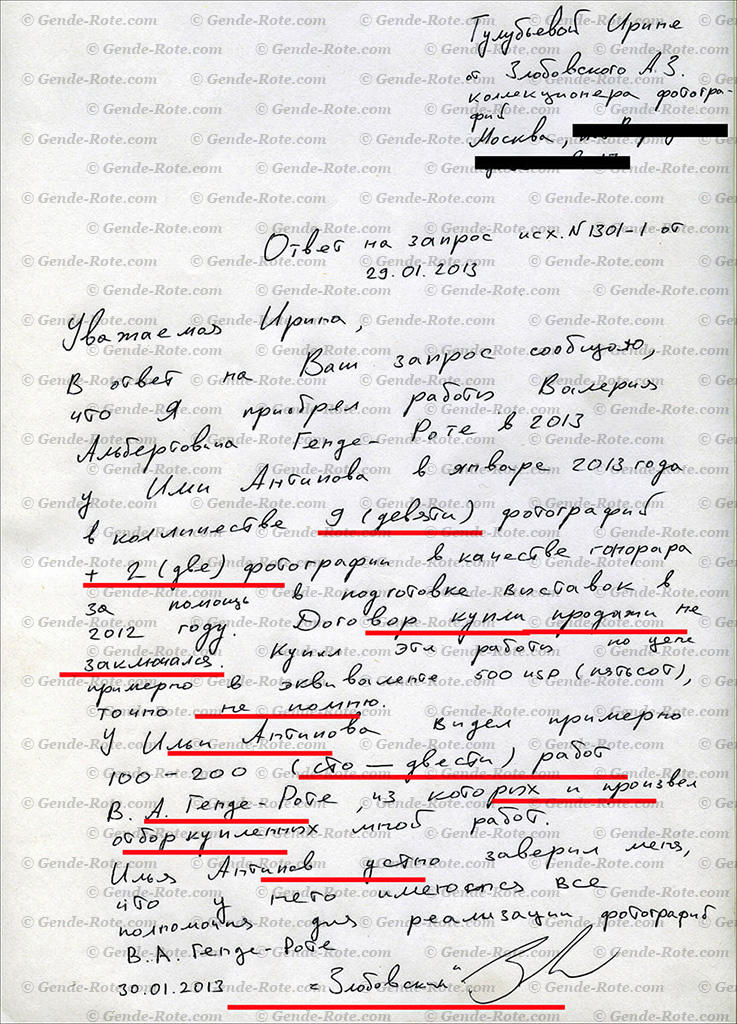 Тулубьевой Ирине
от Злобовского А.З.
коллекционера фотогра-
фий
Москва,
Ответ на запрос исх. N1301-1 от
29.01.2013
Уважаемая Ирина,
В ответ на Ваш запрос сообщаю,
что я приобрел работы Валерия
Альбертовича Генде-Роте в 2013
у Ильи Антипова в январе 2013 года
в колличестве 9 (девяти) фотографий
+ 2 (две) фотографии в качестве гонорара
за помощь в подготовке выставок в
2012 году. Договор купли продажи не
заключался. Купил эти работы по цене
примерно в эквиваленте 500 USD (пятьсот),
точно не помню.
У Ильи Антипова видел примерно
100-200 (сто — двести) работ
В. А. Генде-Роте, из которых и произвел
отбор купленных мной работ.
Илья Антипов устно заверил меня,
что у него имеются все
полномочия для реализации фотографий
В.А. Генде-Роте
30.01.2013 "Злобовский"
© Gende-Rote.com